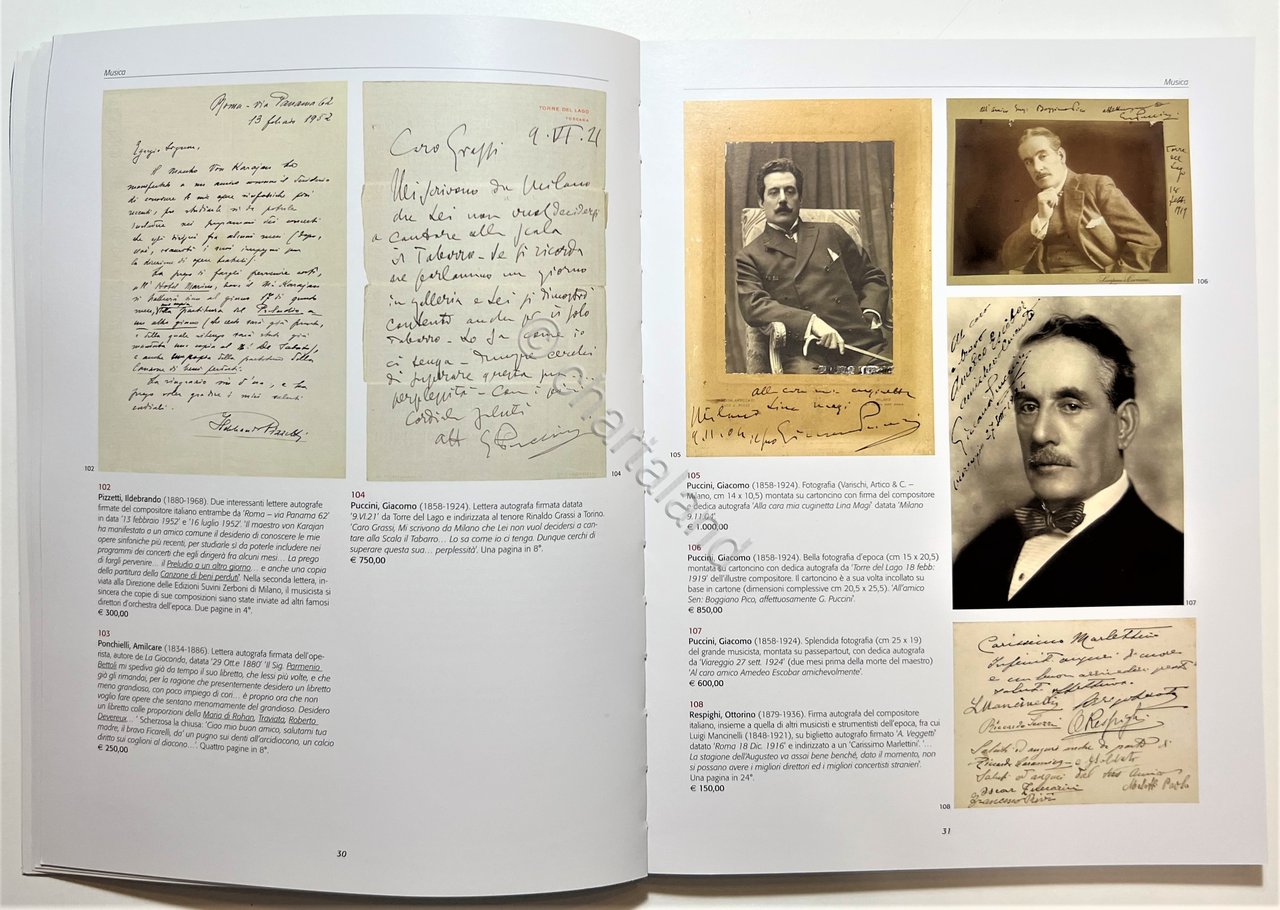 Musica
Roma - via Panama 62
13 febbraio 1952
Egregio Signore,
Il Maestro Von Karajan ha
TORRE DEL LAGO
TOSCANA
9.VI.21
Caro Grassi
Mi scrivono da Milano
che Lei non vuol decidersi
a cantare alla Scala
il Tabarro - Se si ricorda
ne parlammo un giorno
in galleria e Lei si dimostrò
contento anche per il solo
Tabarro - Lo so come io
ci tenga - Dunque cerchi
di superare questa sua
perplessità - Con i più
cordiali saluti
aff GPuccini
102
104
102
Pizzetti, Ildebrando (1880-1968). Due interessanti lettere autografe
firmate del compositore italiano entrambe da 'Roma – via Panama 62'
in data '13 febbraio 1952' e '16 luglio 1952'. 'Il maestro von Karajan
ha manifestato a un amico comune il desiderio di conoscere le mie
opere sinfoniche più recenti, per studiarle sì da poterle includere nei
programmi dei concerti che egli dirigerà fra alcuni mesi… La prego
di fargli pervenire… il Preludio a un altro giorno… e anche una copia
della partitura della Canzone di beni perduti'. Nella seconda lettera, in-
viata alla Direzione delle Edizioni Suvini Zerboni di Milano, il musicista si
sincera che copie di sue composizioni siano state inviate ad altri famosi
direttori d'orchestra dell'epoca. Due pagine in 4°.
€ 300,00
103
Ponchielli, Amilcare (1834-1886). Lettera autografa firmata dell'ope-
rista, autore de La Gioconda, datata '29 Ott.e 1880' 'Il Sig. Parmenio
Bettoli mi spediva già da tempo il suo libretto, che lessi più volte, e che
già gli rimandai, per la ragione che presentemente desidero un libretto
meno grandioso, con poco impiego di cori… è proprio ora che non
voglio fare opere che sentano menomamente del grandioso. Desidero
un libretto colle proporzioni della Maria di Rohan, Traviata, Roberto
Devereux… ' Scherzosa la chiusa: 'Ciao mio buon amico, salutami tua
madre, il bravo Ficarelli, da' un pugno sui denti all'arcidiacono, un calcio
diritto sui coglioni al diacono…'. Quattro pagine in 8°.
€ 250,00
104
Puccini, Giacomo (1858-1924). Lettera autografa firmata datata
'9.VI.21' da Torre del Lago e indirizzata al tenore Rinaldo Grassi a Torino.
'Caro Grassi, Mi scrivono da Milano che Lei non vuol decidersi a can-
tare alla Scala il Tabarro… Lo sa come io ci tenga. Dunque cerchi di
superare questa sua… perplessità'. Una pagina in 8°.
€ 750,00
30
Musica
alla cara mia cuginetta
Lina Magi
Milano
9.11.04
Giacomo Puccini
All'amico Sen. Boggiano Pico affettuosamente
G Puccini
Torre
del
Lago
18
febb:
1919
Al caro
amico
Amedeo Escobar
amichevolmente
Giacomo Puccini
Viareggio 27 sett. 1924
105
106
107
105
Puccini, Giacomo (1858-1924). Fotografia (Varischi, Artico & C. –
Milano, cm 14 x 10,5) montata su cartoncino con firma del compositore
e dedica autografa 'Alla cara mia cuginetta Lina Magi' datata 'Milano
9.11.04'.
€ 1.000,00
106
Puccini, Giacomo (1858-1924). Bella fotografia d'epoca (cm 15 x 20,5)
montata su cartoncino con dedica autografa da 'Torre del Lago 18 febb:
1919' dell'illustre compositore. Il cartoncino è a sua volta incollato su
base in cartone (dimensioni complessive cm 20,5 x 25,5). 'All'amico
Sen: Boggiano Pico, affettuosamente G. Puccini'.
€ 850,00
107
Puccini, Giacomo (1858-1924). Splendida fotografia (cm 25 x 19)
del grande musicista, montata su passepartout, con dedica autografa
da 'Viareggio 27 sett. 1924' (due mesi prima della morte del maestro)
'Al caro amico Amedeo Escobar amichevolmente'.
€ 600,00
108
Respighi, Ottorino (1879-1936). Firma autografa del compositore
italiano, insieme a quella di altri musicisti e strumentisti dell'epoca, fra cui
Luigi Mancinelli (1848-1921), su biglietto autografo firmato 'A. Veggetti'
datato 'Roma 18 Dic. 1916' e indirizzato a un 'Carissimo Marlettini'. '…
La stagione dell'Augusteo va assai bene benché, dato il momento, non
si possano avere i migliori direttori ed i migliori concertisti stranieri'.
Una pagina in 24°.
€ 150,00
Carissimo Marlettini
Infiniti auguri di cuore
e un buon arrivederci presto
saluti affettuosi
LMancinelli
O Respighi
Saluti ed auguri anche da parte di
Saluti ed auguri dal suo amico
Oscar
Francesco
108
31
© chartaland